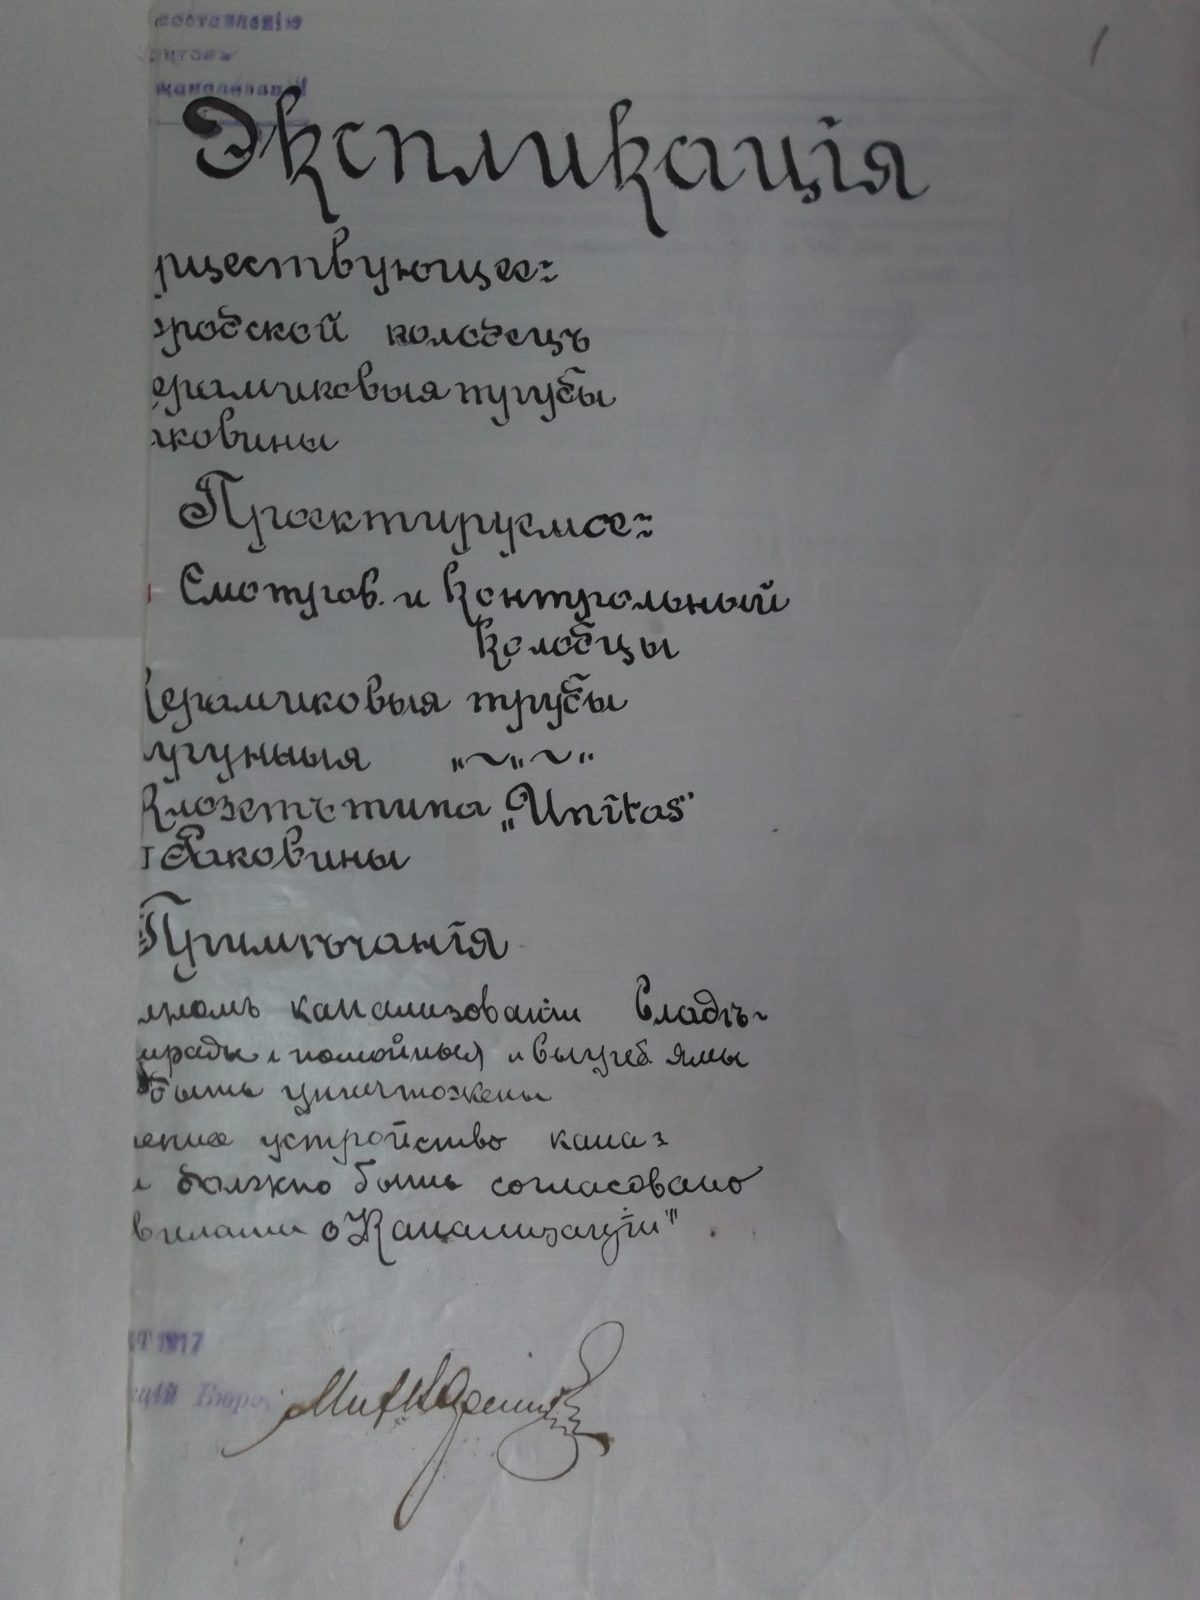 составленію
канализаціи
1
Экспликація
уществующее:
ородской колодецъ
ерамиковыя трубы
аковины
Проектируемое:
Смотров. и контрольный
колодцы
Керамиковыя трубы
угунныя „~„~„
Клозетъ типа „Unitas"
Раковины
Примѣчанія
лномъ канализованіи владѣ-
помойныя и выгреб. ямы
быть уничтожены
ение устройство кана-
и должно быть согласовано
вилами о Канализаціи"
1917
цій Бюро